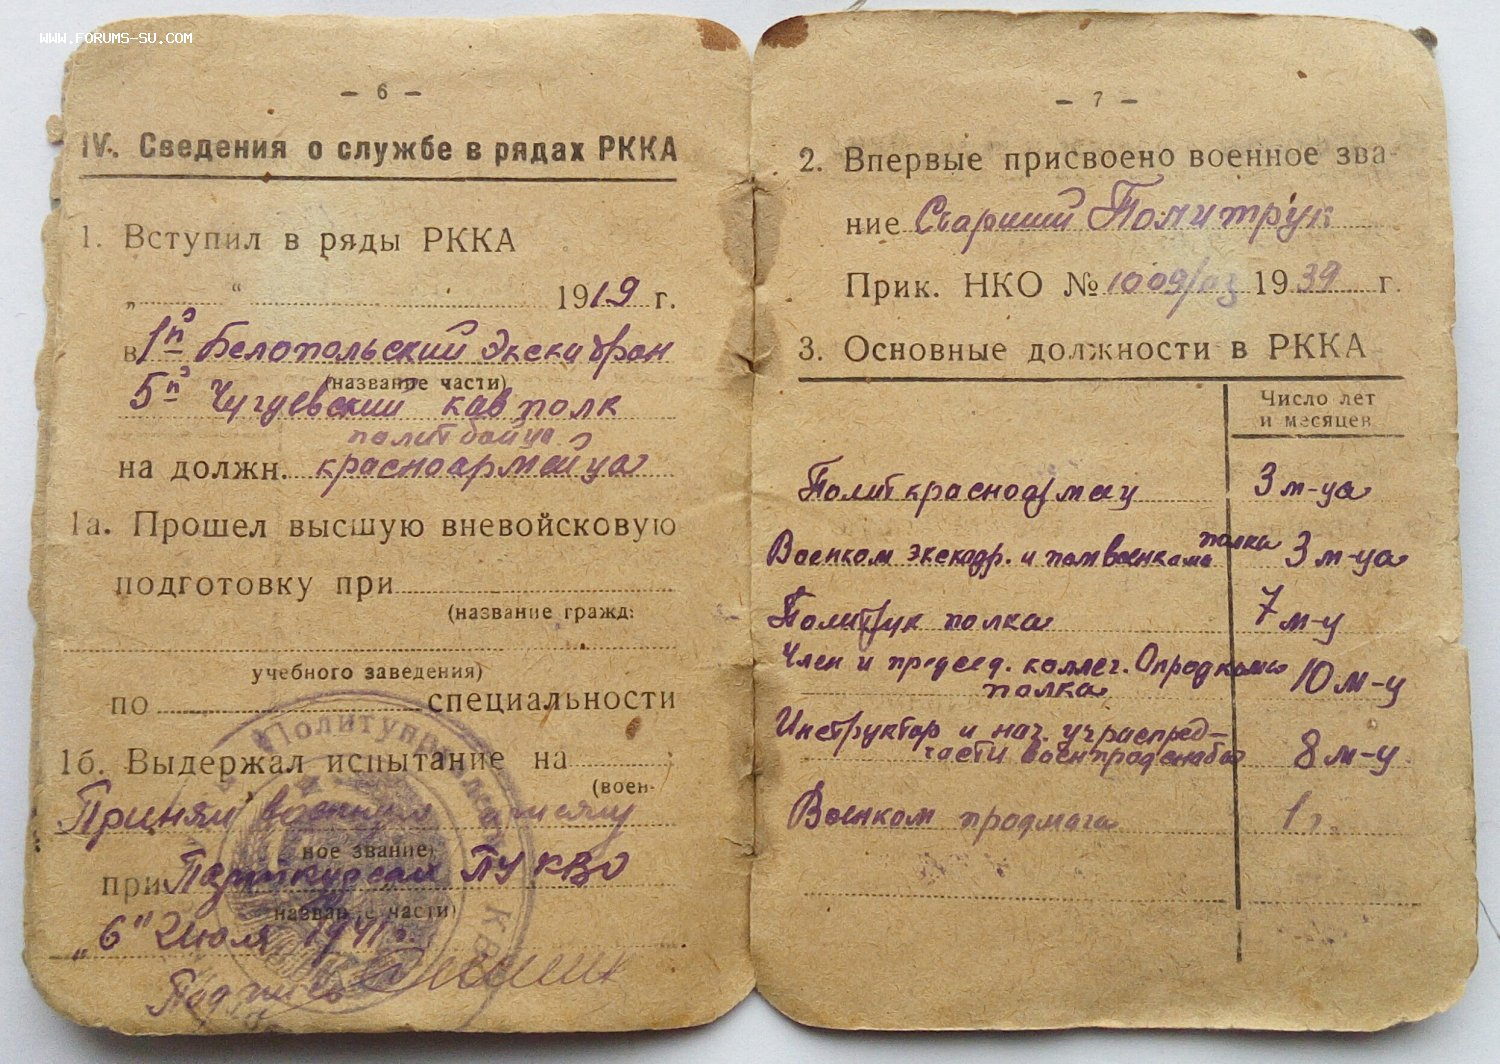 WWW.FORUMS-SU.COM
– 6 –
IV. Сведения о службе в рядах РККА
1. Вступил в ряды РККА
„ “ 1919 г.
в 1й Белопольский Экскадрон
(название части)
5й Чугуевский кав полк
полит бойца
на должн. красноармейца
1а. Прошел высшую вневойсковую
подготовку при
(название гражд:
учебного заведения)
по специальности
1б. Выдержал испытание на
(воен-
Принял военную присягу
ное звание)
при Парткурсах ПУ КВО
название части)
„6" Июля 1941 г.
Подпись
Политуправление КВО
– 7 –
2. Впервые присвоено военное зва-
ние Старший Политрук
Прик. НКО № 1009/оз 1939 г.
3. Основные должности в РККА
Число лет
и месяцев
Политкрасноармеец 3 м-ца
полка
Военком экскадр. и помвоенкома 3 м-ца
Политрук полка 7 м-ц
Член и председ. коллег. Опродкома
полка 10 м-ц
Инструктор и нач. учраспред-
части военпродснаба 8 м-ц.
Военком продмага 1 г.